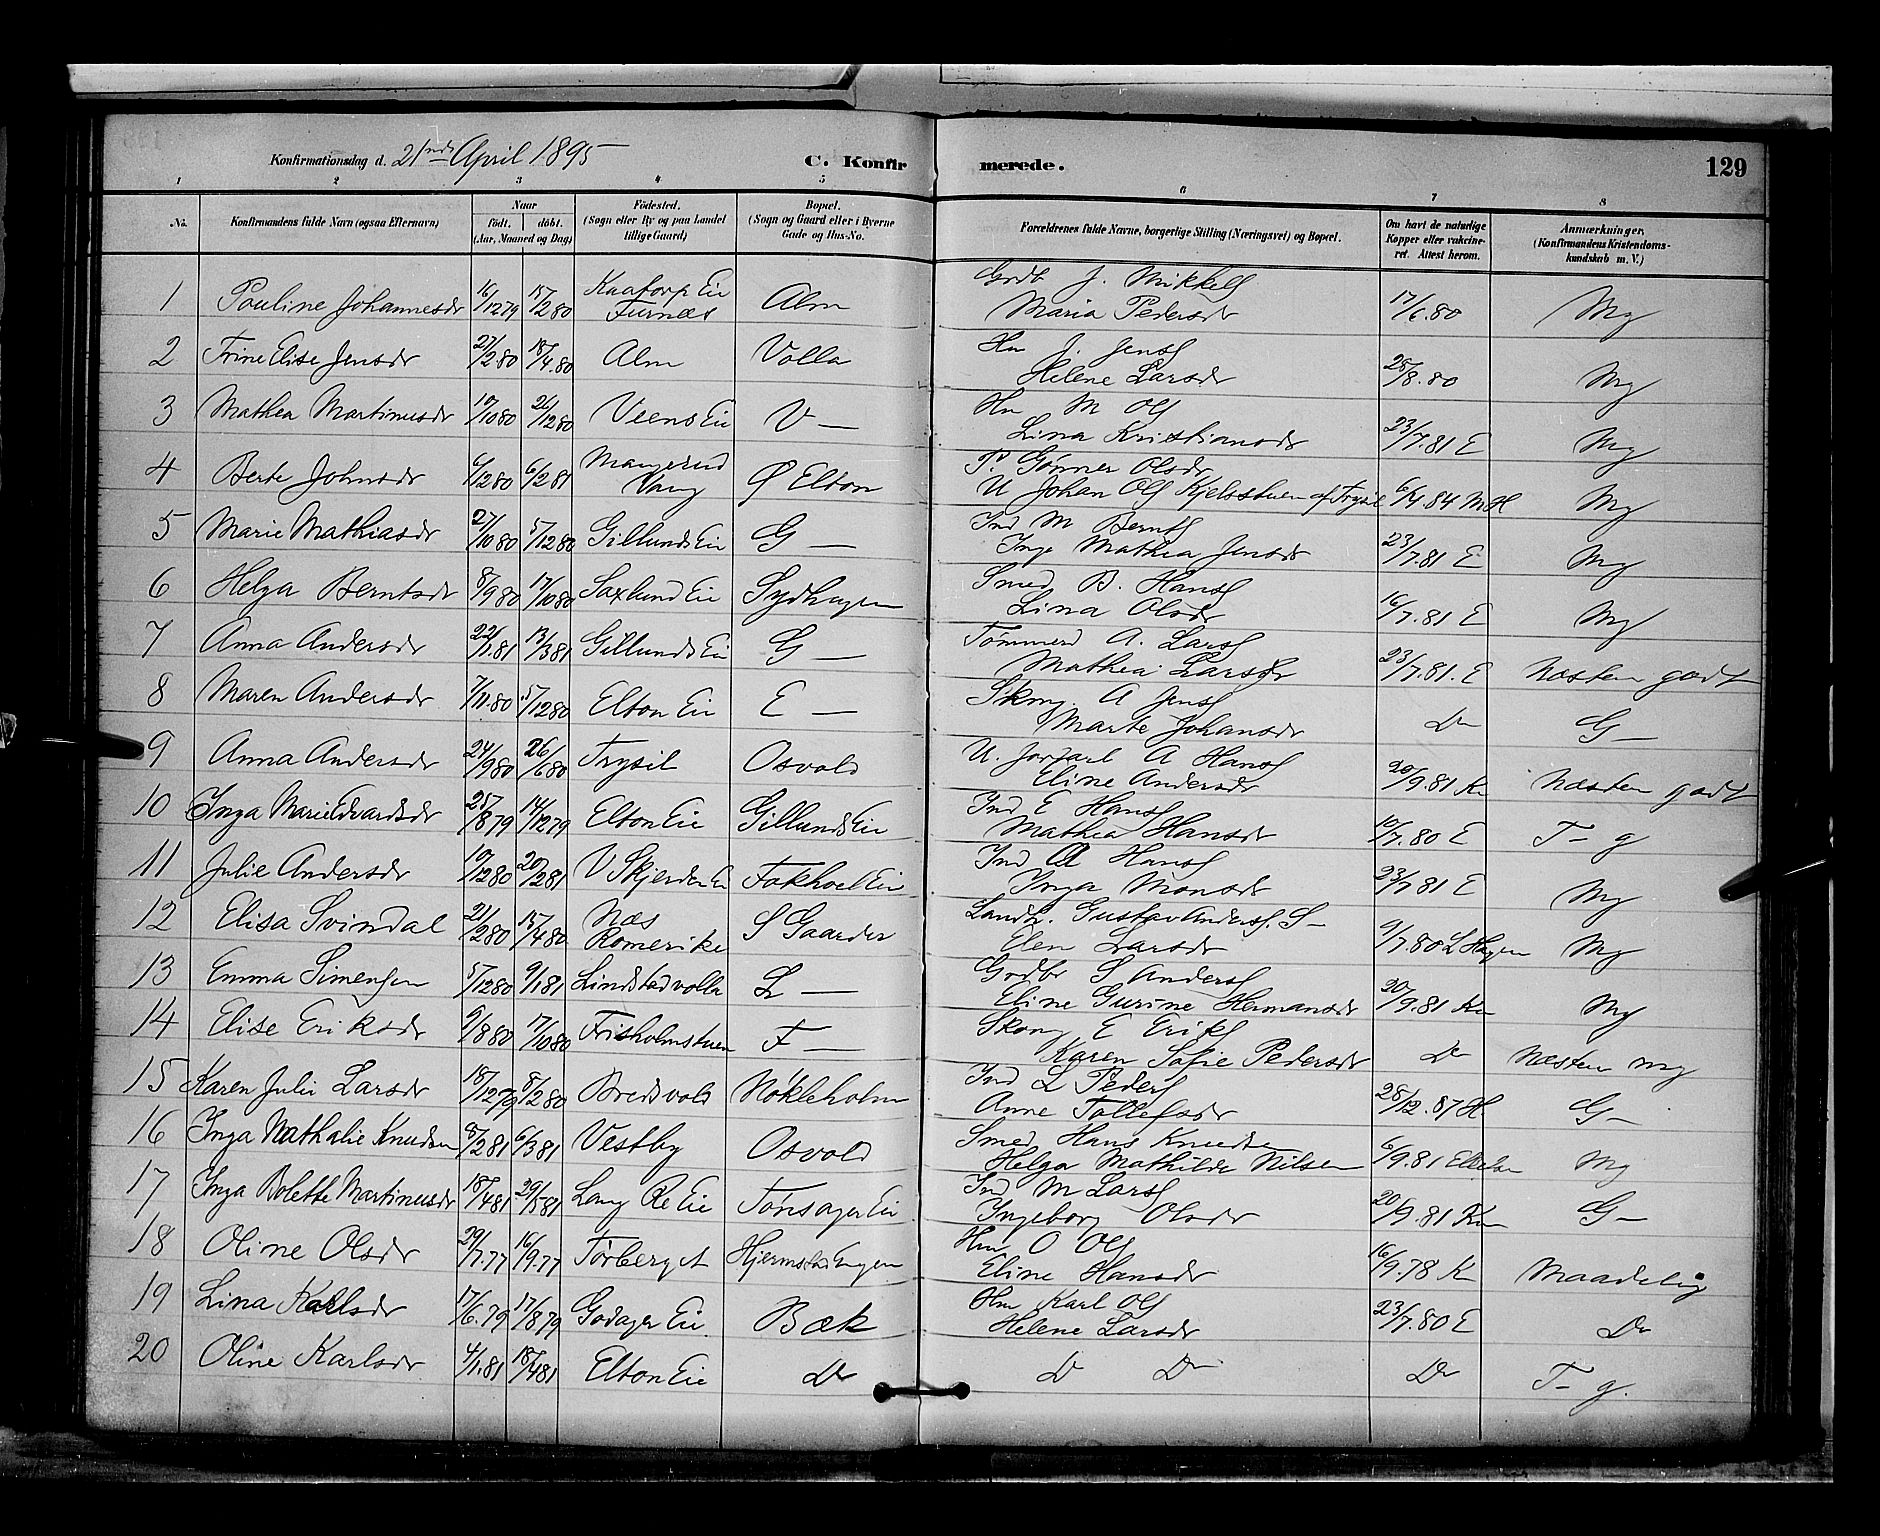 Konfirmationsdag d. 21nde April 1895
C. Konfirmerede.
129
1 2 3 4 5 6 7 8
No.
Konfirmandens fulde Navn (ogsaa Efternavn)
Naar
født. døbt.
(Aar, Maaned og Dag)
Fødested.
(Sogn eller By og paa Landet
tillige Gaard)
Bopæl.
(Sogn og Gaard eller i Byerne
Gade og Hus-No.
Forældrenes fulde Navne, borgerlige Stilling (Næringsvei) og Bopæl.
Om havt de naturlige
Kopper eller vakcine-
ret. Attest herom.
Anmærkninger.
(Konfirmandens Kristendoms-
kundskab m. V.)
1 Pauline Johannesdr 16/12 79 15/2 80 Kaatorp Eie Furnæs Alm Grdb J. Mikkels Maria Pedersdr 17/6.80 Mg
2 Trine Elise Jensdr 21/2 80 18/4.80 Alm Volla Hm J. Jens Helene Larsdr 25/8.80 Mg
3 Mathea Martinusdr 17/10 80 26/12 80 Veens Eie V — Hm M Ols Lina Kristiansdr 23/7.81 E Mg
4 Berte Johnsdr 6/12 80 6/2 81 Vang Ø Elton P. Gunner Olsdr U Johan Ols Kjelsstuen af Trysil 6/4.84 MH Mg
5 Marie Mathiasdr 27/10 80 5/12 80 Gillunds Eie G — Ind M Bernts Inge Mathea Jensdr 23/7.81 E Mg
6 Helga Berntsdr 8/9 80 17/10 80 Saxlund Eie Sydhagen Smed B. Hans Lina Olsdr 16/7.81 E Mg
7 Anna Andersdr 22/1 81 13/3 81 Gillunds Eie G — Tømmerd A. Lars Mathea Larsdr 23/7.81. E Næsten godt
8 Maren Andersdr 7/11.80 5/12 80 Elton Eie E — Skomg. A Jens Marte Johansdr Do G —
9 Anna Andersdr 24/9 80 26/6 80 Trysil Osvold U. Jorfarl A Hans Eline Andersdr 20/9.81 Kn Næsten godt
10 Inga Marie Edvardsdr 25/8 79 14/12 79 Elton Eie Gillunds Eie Ind E Hans Mathea Hansdr 10/7.80 E T- g
11 Julie Andersdr 10/12 80 20/2 81 V Skjerden Ei Fokhoel Eie Ind A Hans Inga Monsdr 23/7 81 E Mg
12 Elisa Svindal 21/2 80 15/4 80 Næs Romerike S Gaarder Landh. Gustav Anders. S- Elen Larsdr 9/7.80 L Hagen Mg
13 Emma Simensen 5/12 80 9/1 81 Lindstadvolla L — Grdbr S Anders Eline Gurine Hermansdr 20/9.81 Kn Mg
14 Elise Eriksdr 9/8 80 17/10 80 Frisholmstuen F — Skomg E Eriks Karen Sofie Pedersdr Do Næsten mg
15 Karen Julie Larsdr 18/12 79 8/2 80 Bredsvold Nøkleholm Ind L Peders Anne Tollefsdr 28/12.87 H G-
16 Inga Nathalie Knudsen 8/2 81 6/3 81 Vestby Osvold Smed Hans Knudsen Helga Mathilde Nilsen 6/9.81 Mg
17 Inga Bolette Martinusdr 18/4 81 29/5 81 Lang Re Eie Tønsager Eie Ind M Lars Ingeborg Olsdr 20/9.81 Kn G-
18 Oline Olsdr 29/7.77 16/9.77 Tørberget Hjermstad Engen Hm O Ols Eline Hansdr 16/9.78 Kn Maadelig
19 Lina Karlsdr 17/6.79 17/8 79 Godager Eie Bæk Hm Karl Ols Helene Larsdr 23/7.80 E Do
20 Oline Karlsdr 4/1.81 18/4 81 Elton Eie Do D Do Do T- g.